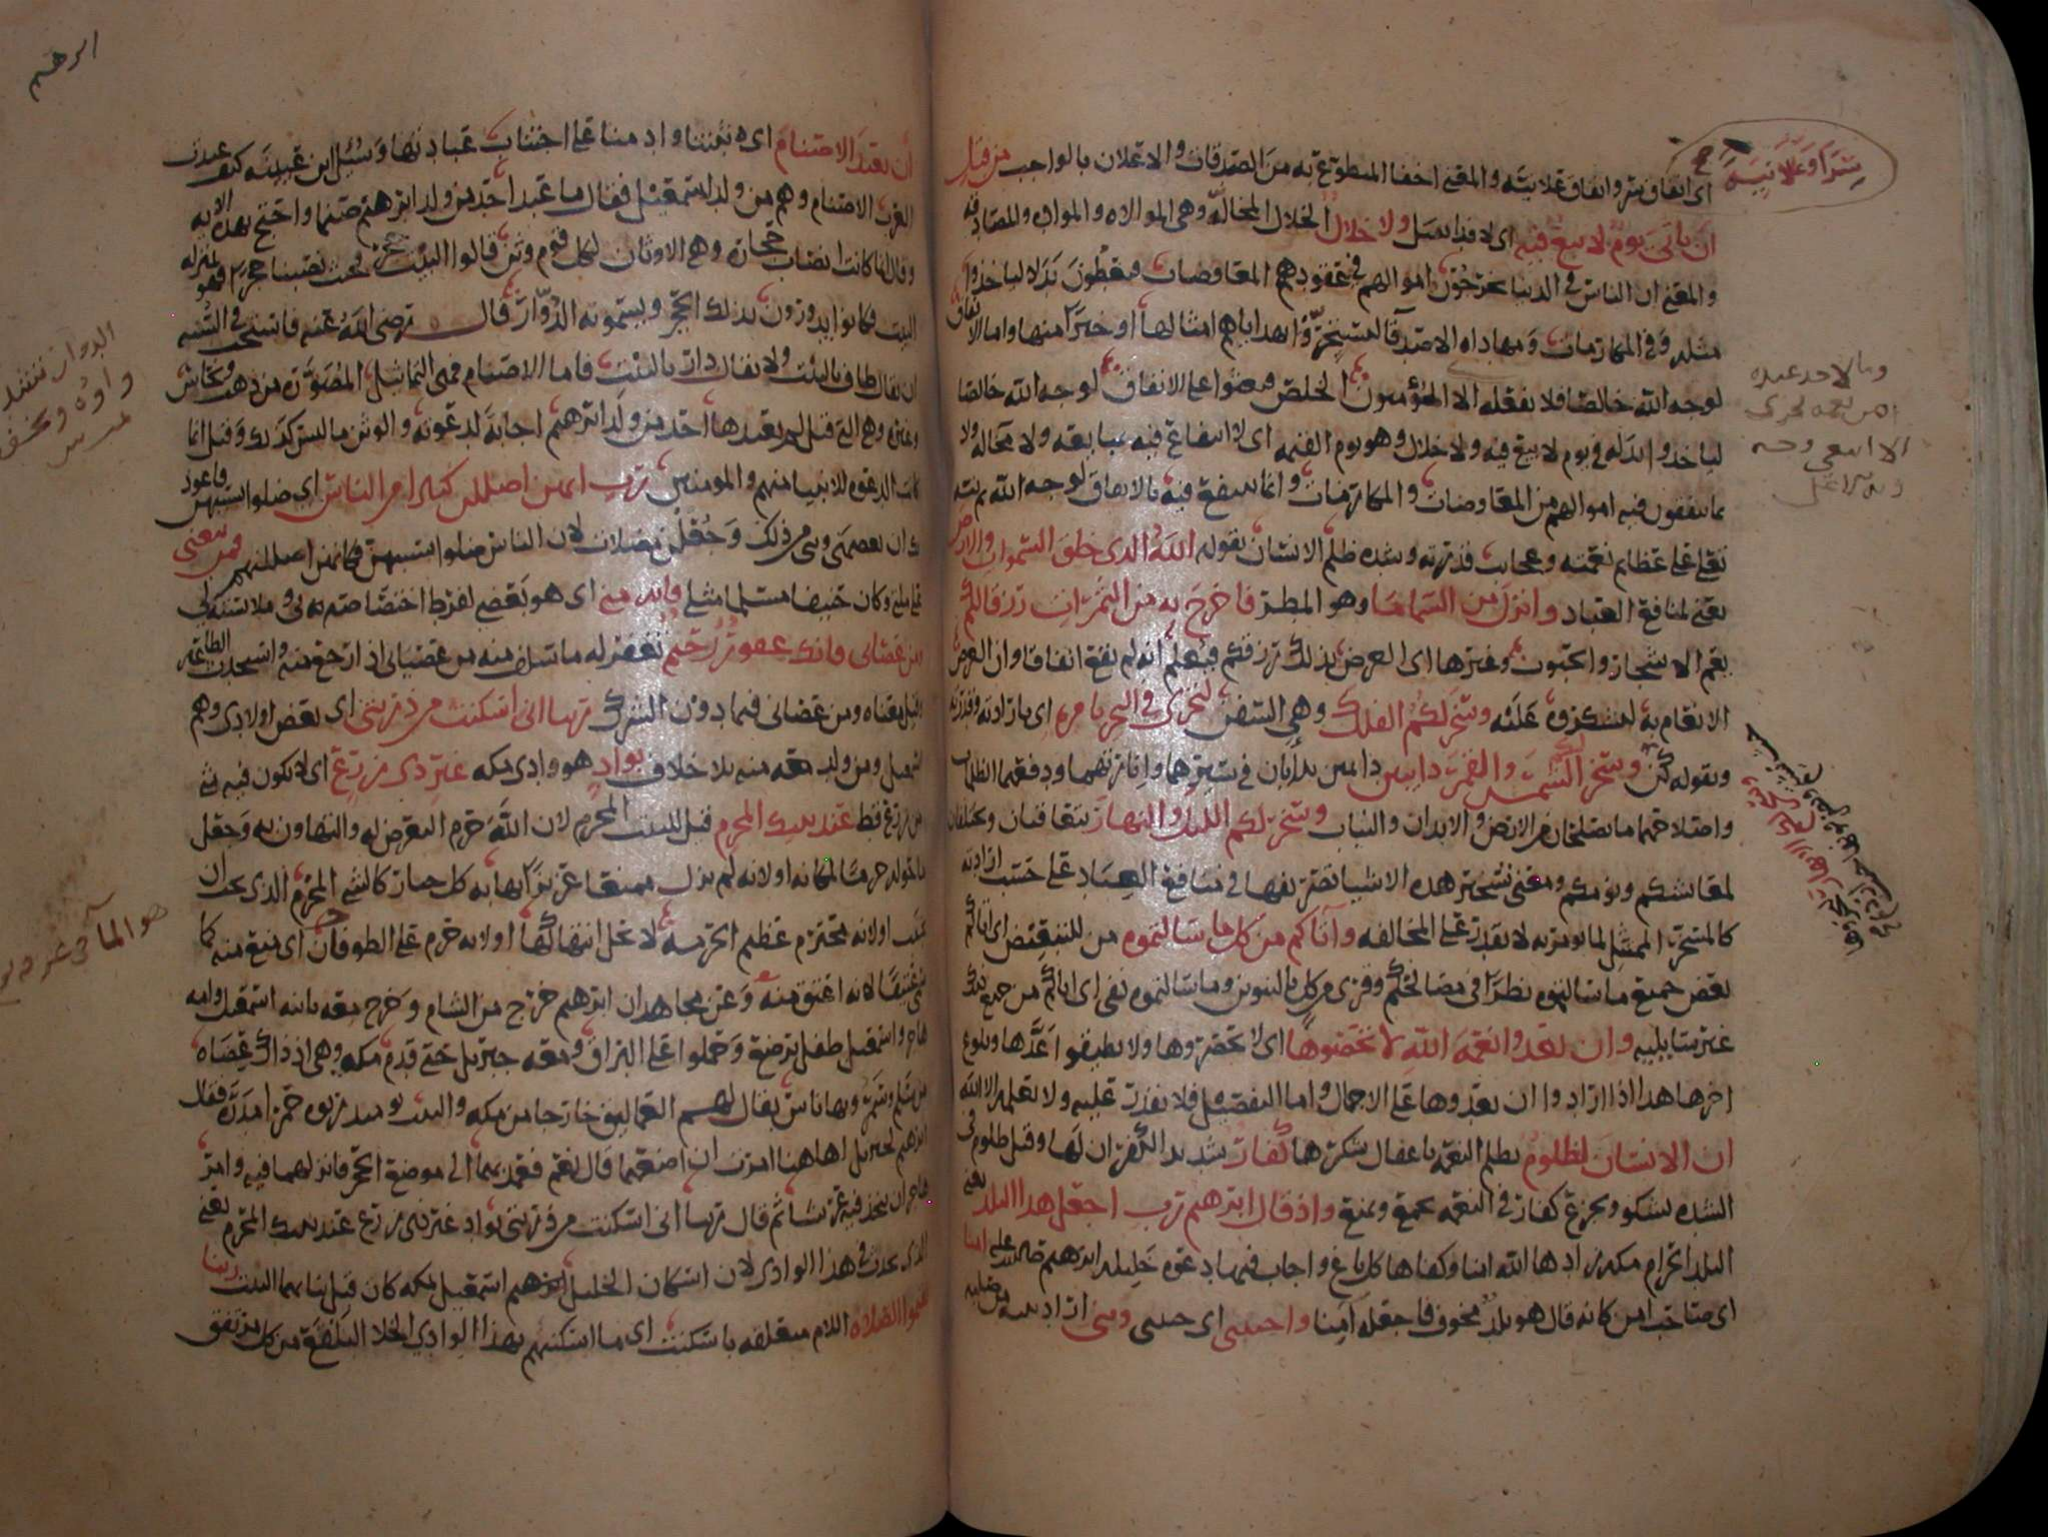 سرا وعلانية
اي انفاق سر وانفاق علانية والمعنى اخفا المتطوع به من الصدقات والاعلان بالواجب من قبل
ان ياتى يوم لا بيع فيه اي لا فدا يقبل ولا خلال الخلال المخالة وهي الموالاه والمواد والمصادقه
والمعنى ان الناس في الدنيا يخرجون اموالهم في عقودهم المعاوضات فيعطون بدلا لياخذوا
مثله وفي المكارمات ومهاداه الاصدقا ليستجروا بهداياهم امثالها او خيرا منها واما الانفاق
لوجه الله خالصا فلا يفعله الا المؤمنون الخلص فبعثوا على الانفاق لوجه الله خالصا
لياخذوا بدله في يوم لا بيع فيه ولا خلال وهو يوم القيمه اي لا انتفاع فيه بمبايعه ولا مخاله ولا
بما ينفقون فيه اموالهم من المعاوضات والمكارمات وانما ينتفع فيه بالانفاق لوجه الله ثم نبه
تعالى على عظايم نعمته وعجايب قدرته وشده ظلم الانسان بقوله الله الذي خلق السموات والارض
يعني لمنافع العباد وانزل من السما ما وهو المطر فاخرج به من الثمرات رزقا لكم
يعم الاشجار والحبوب وغيرها اي الغرض بذلك رزقكم فيعلم انه لم يقع اتفاقا وان الغرض
الانعام به لنشكره عليه وسخر لكم الفلك وهي السفن لتجري في البحر بامره اي بارادته وقدرته
وبقوله كن وسخر لكم الشمس والقمر دايبين دايمين يدابان في سيرهما وانارتهما ودفعهما الظلمات
واصلاحهما ما يصلحان من الارض والابدان والنبات وسخر لكم الليل والنهار يتعاقبان ويختلفان
لمعاشكم ونومكم ومعنى تسخير هذه الاشيا تصريفها في منافع العباد على حسب ارادته
كالمسخر الممتثل لما يومر به لا يقدر على المخالفه وآتاكم من كل ما سالتموه من للتبعيض اي اتاكم
بعض جميع ما سالتموه نظرا في مصالحكم وقرئ من كل بالتنوين وما سالتموه نفي اي اتاكم من جميع ذلك
غير سايليه وان تعدوا نعمه الله لا تحصوها اي لا تحصروها ولا تطيقوا عدها وبلوغ
اخرها هذا اذا ارادوا ان يعدوها على الاجمال واما التفصيل فلا يقدر عليه ولا يعلمه الا الله
ان الانسان لظلوم يظلم النعمه باغفال شكرها كفار شديد الكفران لها وقيل ظلوم في
الشده يشكو ويجزع كفار في النعمه يجمع ويمنع واذ قال ابرهيم رب اجعل هذا البلد يعني
البلد الحرام مكه زادها الله امنا وكفاها كل باغ واجاب فيها دعوه خليله ابرهيم امنا
اي صاحب امن كانه قال هو بلد مخوف فاجعله آمنا واجنبني اي جنبني وبني اراد بنيه من صلبه
ان نعبد الاصنام اي ثبتنا وادمنا على اجتناب عبادتها وسئل ابن عيينه كيف عبدت
العرب الاصنام وهم من ولد اسمعيل فقال ما عبد احد من ولد ابرهيم صنما واحتج بهذه الايه
وقال انما كانت انصاب حجاره وهي الاوثان لكل قوم وثن قالوا البيت حجر فحيث نصبنا حجرا فهو بمنزله
البيت فكانوا يدورون بذلك الحجر ويسمونه الدوار قال رضي الله عنه فاستحب في السنه
ان يقال طاف بالبيت ولا يقال دار بالبيت فاما الاصنام فهي التماثيل المصوره من ذهب ونحاس
وغيره وهي التي قيل لم يعبدها احد من ولد ابرهيم اجابة لدعوته والوثن ما ليس كذلك وقيل انما
كانت الدعوه للانبيا منهم والمومنين رب انهن اضللن كثيرا من الناس اي ضلوا بسببهن فاعوذ
بك ان تعصمني وبني من ذلك وجعلن مضلات لان الناس ضلوا بسببهن فكانهن اضللنهم فمن تبعني
على ملتي وكان حنيفا مسلما مثلي فانه مني اي هو بعضي لفرط اختصاصه بي وملابسته لي
ومن عصاني فانك غفور رحيم تغفر له ما سلف منه من عصياني اذا رجع عنه واستحدث الطاعه
وقيل معناه ومن عصاني فيما دون الشرك ربنا اني اسكنت من ذريتي اي بعض اولادي وهم
اسمعيل ومن ولد معه منه بلا خلاف بواد هو وادي مكه غير ذي زرع اي لا يكون فيه شي
من زرع قط عند بيتك المحرم قيل للبيت المحرم لان الله حرم التعرض له والتهاون به وجعل
ما حوله حرما لمكانه او لانه لم يزل ممنعا عزيزا يهابه كل جبار كالشي المحرم الذي يجب ان
يجتنب او لانه محترم عظيم الحرمه لا تحل انتهاكها او لانه حرم على الطوفان اي منع منه كما
سمي عتيقا لانه اعتق منه وعن مجاهد ان ابرهيم خرج من الشام وخرج معه بابنه اسمعيل وامه
هاجر واسمعيل طفل يرضع وحملوا على البراق ومعه جبريل حتى قدم مكه وهي اذ ذاك عضاه
من سلم وسمر وبها ناس يقال لهم العماليق خارجا من مكه والبيت يوميذ ربوه حمرا مدره فقال
ابرهيم لجبريل اهاهنا امرت ان اضعهما قال نعم فعمد بهما الى موضع الحجر فانزلهما فيه وامر
هاجر ان تتخذ فيه عريشا ثم قال ربنا اني اسكنت من ذريتي بواد غير ذي زرع عند بيتك المحرم يعني
الذي يحدث في هذا الوادي لان اسكان الخليل ابرهيم اسمعيل بمكه كان قبل بنايهما البيت ربنا
ليقيموا الصلاه اللام متعلقه باسكنت اي ما اسكنتهم بهذا الوادي الخلا البلقع من كل مرتفق
الدوار بتشديد
واوه وتخفف